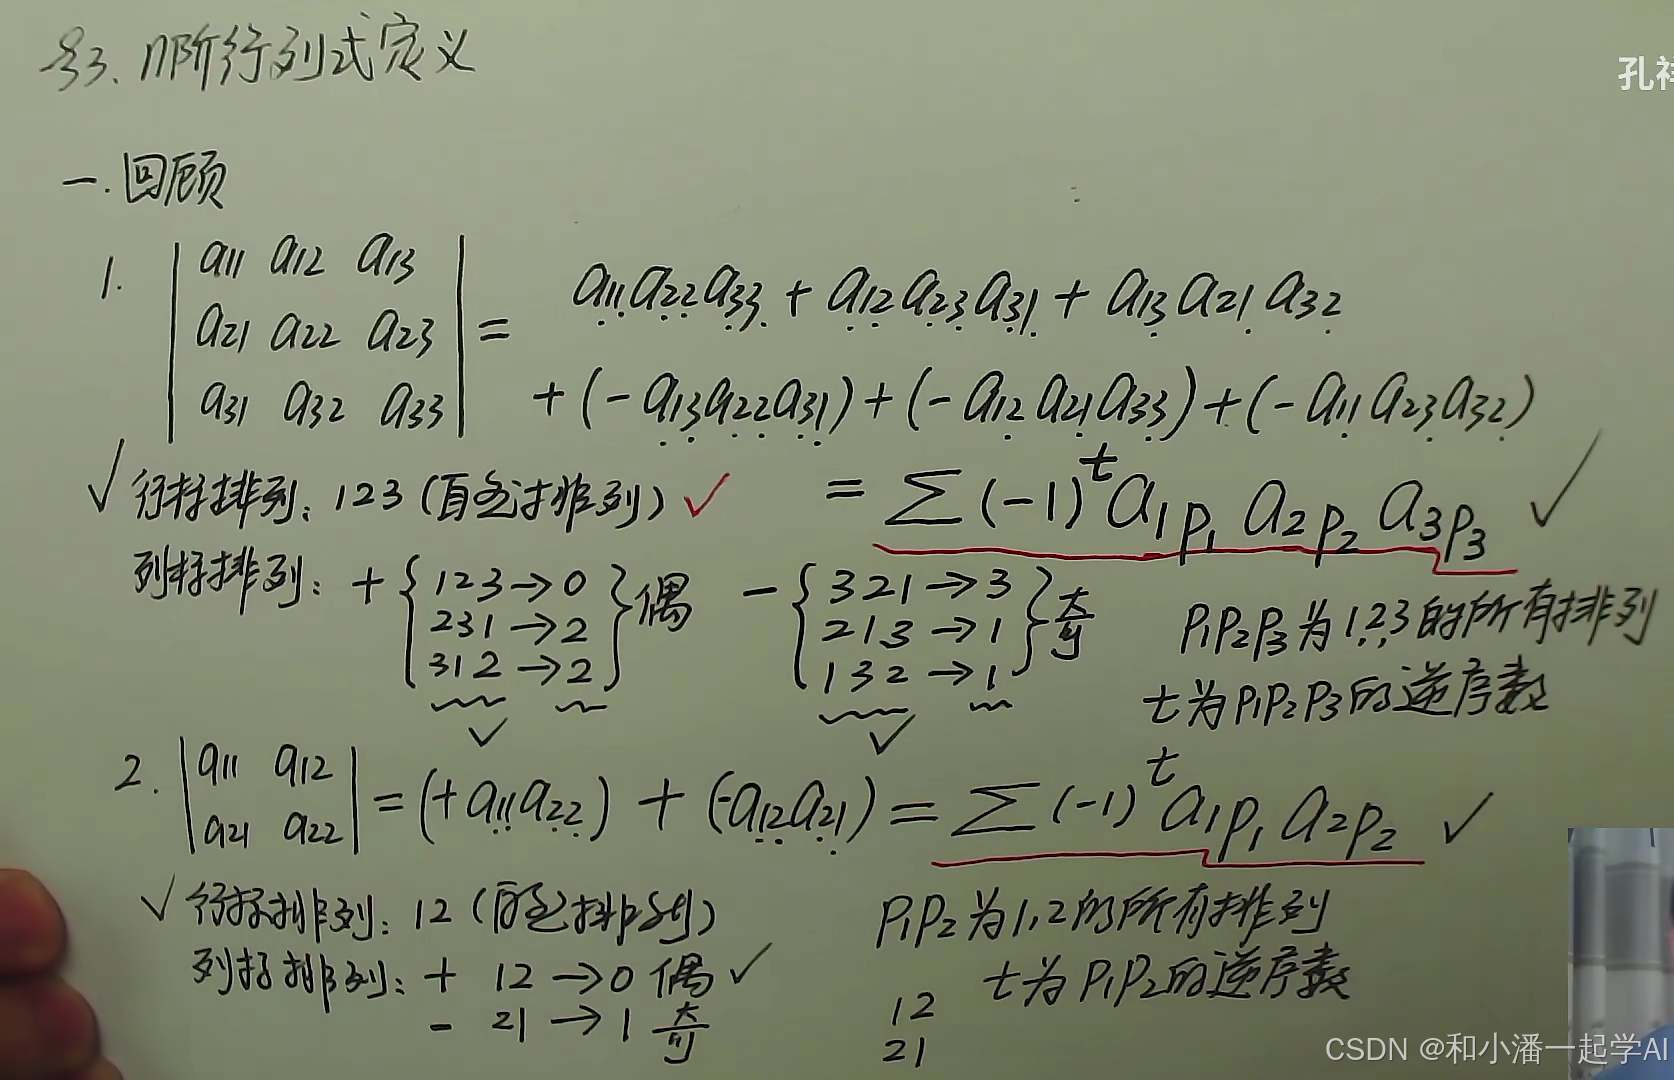 §3. n阶行列式定义
孔祥
一. 回顾
1. | a11 a12 a13 |
| a21 a22 a23 | =
| a31 a32 a33 |
a11a22a33 + a12a23a31 + a13a21a32
+(-a13a22a31)+(-a12a21a33)+(-a11a23a32)
= ∑(-1)^t a1p1 a2p2 a3p3 ✓
✓ 行标排列: 123 (自然排列) ✓
列标排列: + { 123→0 } 偶 - { 321→3 } 奇
231→2 213→1
312→2 132→1
✓ ✓
p1p2p3为1,2,3的所有排列
t为p1p2p3的逆序数
2. | a11 a12 |
| a21 a22 | =(+a11a22) + (-a12a21) = ∑(-1)^t a1p1 a2p2 ✓
✓ 行标排列: 12 (自然排列)
列标排列: + 12→0 偶 ✓
- 21→1 奇
p1p2为1,2的所有排列
t为p1p2的逆序数
12
21
CSDN @和小潘一起学AI